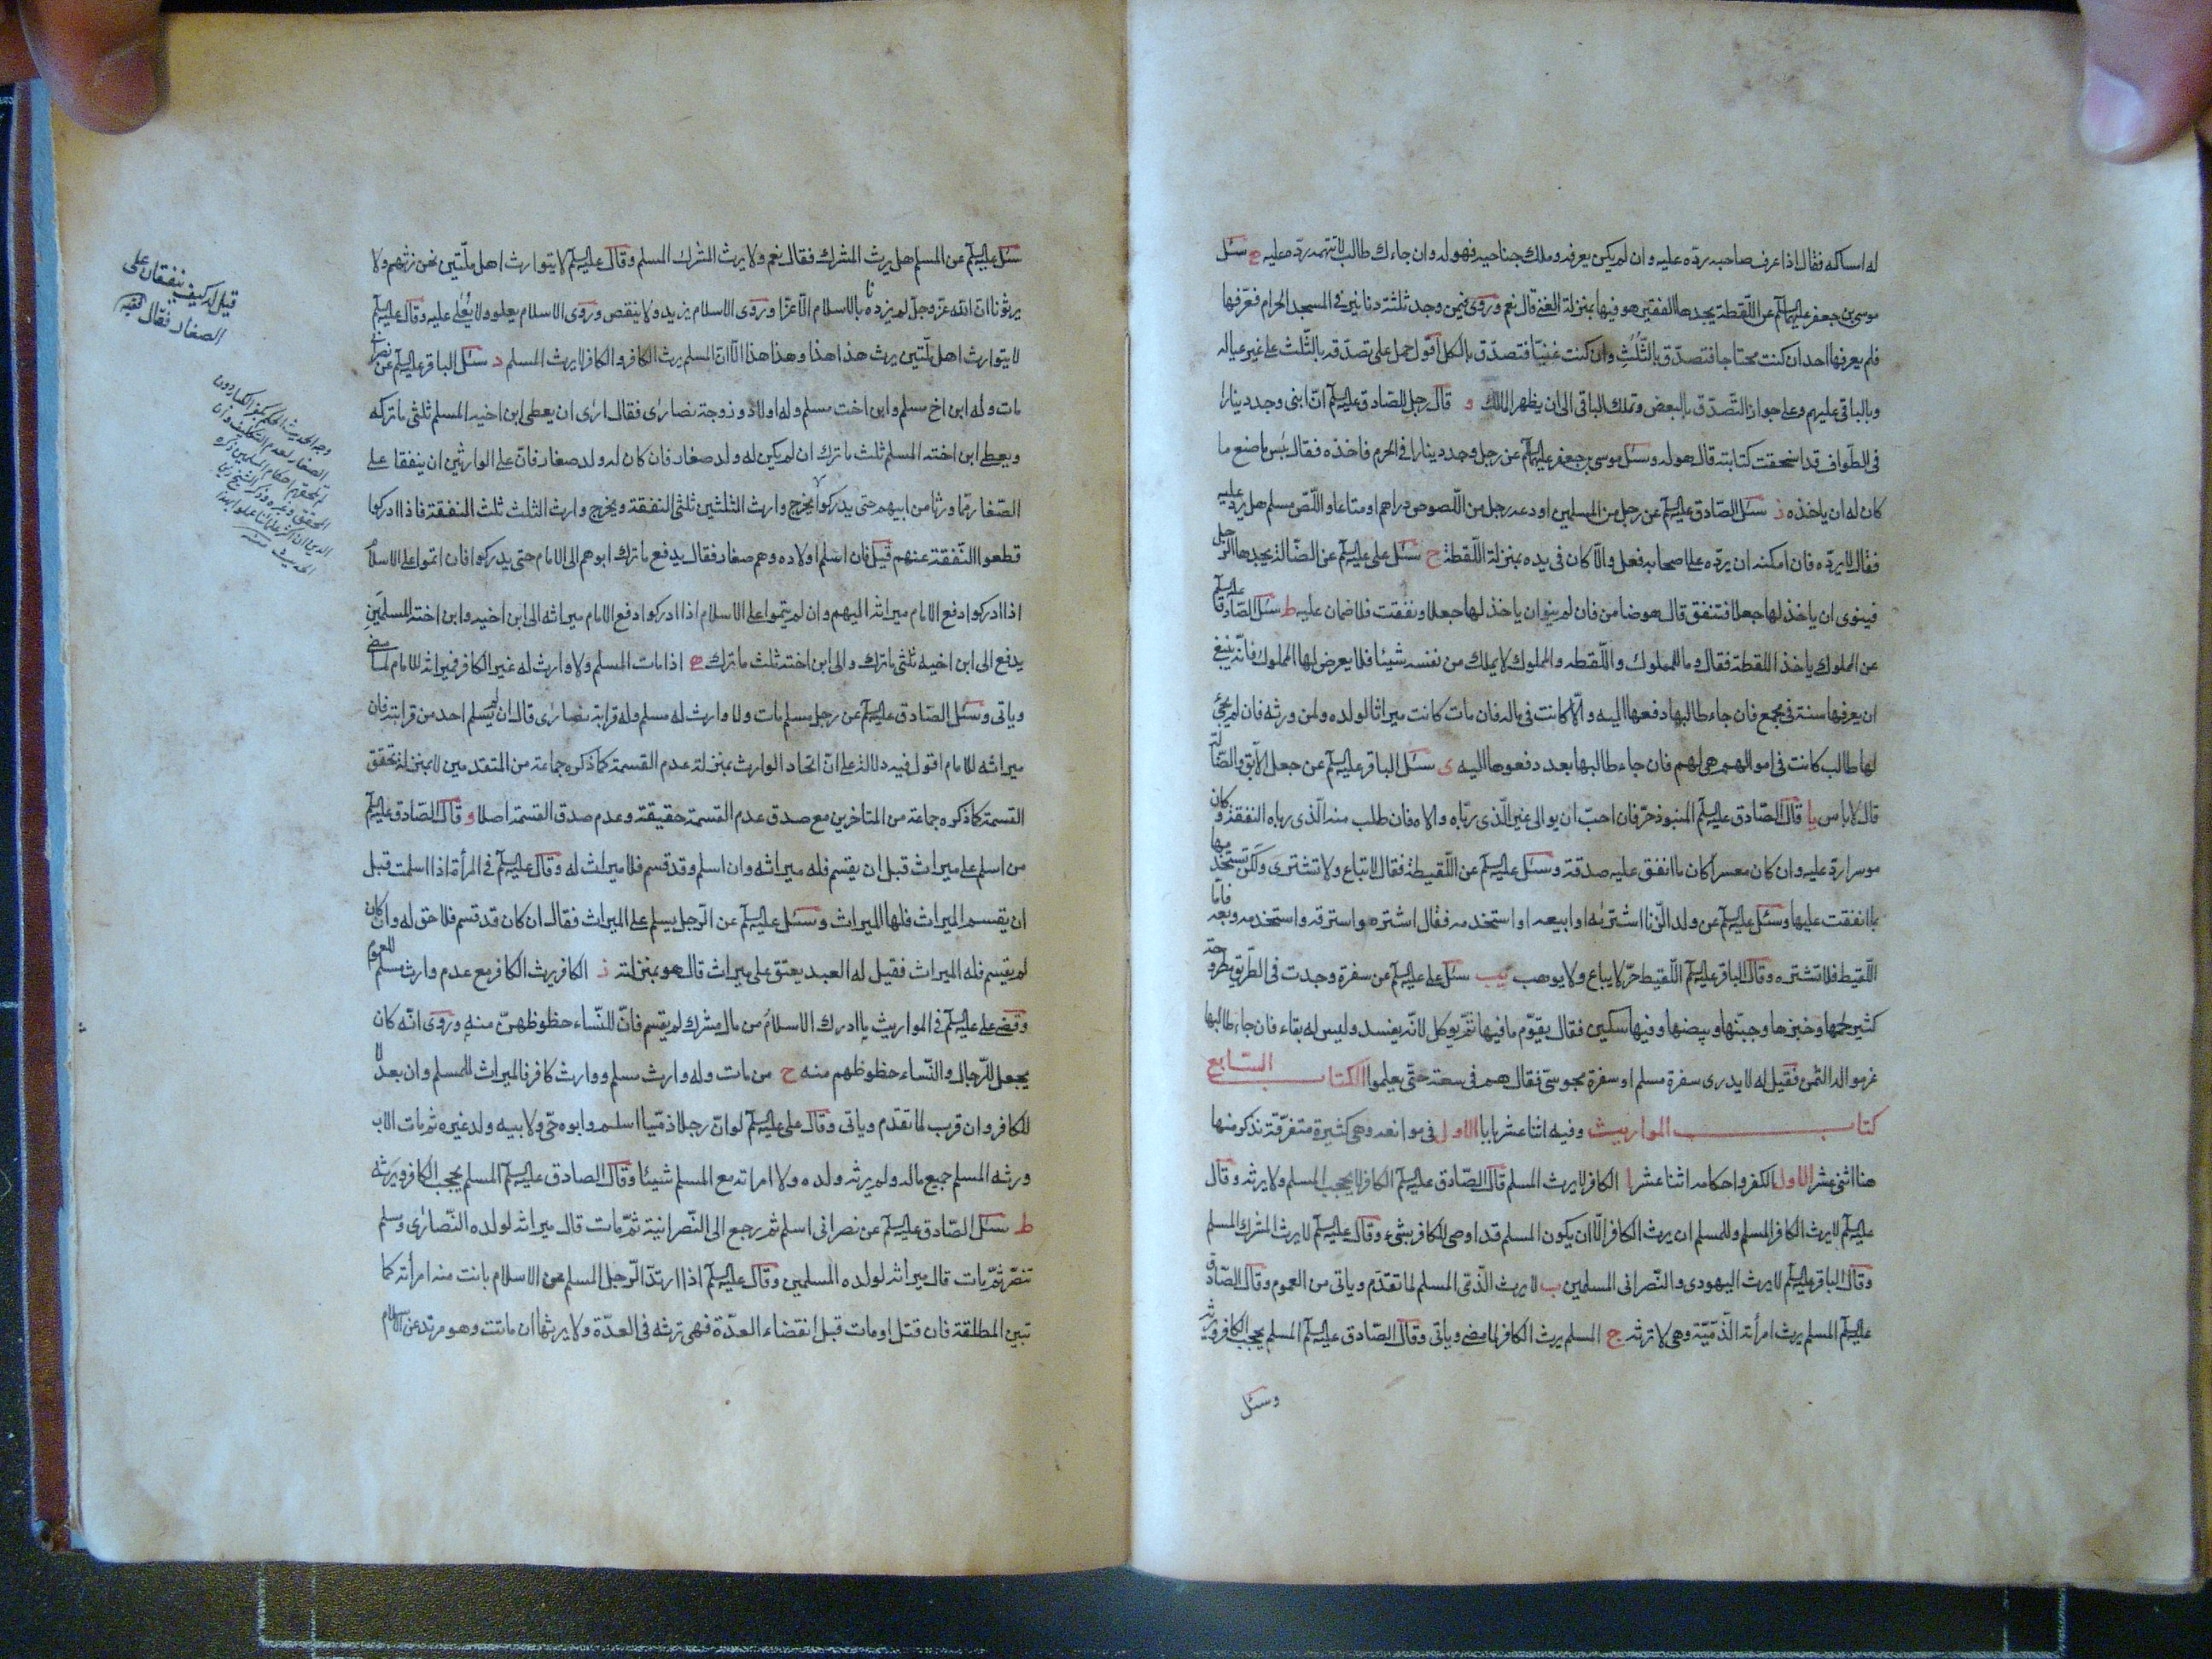 له امساكه فقال اذا عرف صاحبه ردّه عليه وان لم يكن يعرفه وملك جناحيه فهو له وان جاءك طالب لا تتهمه ردّه عليه ه سئل
موسى بن جعفر عليهما السلم عن اللّقطة يجدها الفقير هو فيها بمنزلة الغنى قال نعم وروى فيمن وجد ثلثة دنانير فى المسجد الحرام فعرّفها
فلم يعرفها احد ان كنت محتاجا فتصدّق بالثّلُثِ وان كنت غنيّا فتصدّق بالكل اقول حمل على تصدّقه بالثّلث على غير عياله
وبالباقى عليهم وعلى جواز التّصدّق بالبعض وتملك الباقى الى ان يظهر المالك و قال رجل للصّادق عليه السلم انّ ابنى وجد دينارا
فى الطّواف قد انسحقت كتابته قال هو له وسئل موسى بن جعفر عليهما السلم عن رجل وجد دينارا فى الحرم فاخذه فقال بئس ما صنع ما
كان له ان ياخذه ز سئل الصّادق عليه السلم عن رجل من المسلمين اودعه رجل من اللّصوص دراهم او متاعا واللّصّ مسلم هل يردّ عليه
فقال لا يردّه فان امكنه ان يردّه على اصحابه فعل والّا كان فى يده بمنزلة اللّقطة ح سئل على عليه السلم عن الضّالة يجدها الرّجل
فينوى ان ياخذ لها جعلا فتنفق قال هو ضامن فان لم ينو ان ياخذ لها جعلا ونفقت فلا ضمان عليه ط سئل الصّادق عليه السلم
عن المملوك ياخذ اللقطة فقال وما للمملوك واللّقطه والمملوك لا يملك من نفسه شيئا فلا يعرض لها المملوك فانّه ينبغى
ان يعرفها سنة فى مجمع فان جاء طالبها دفعها اليه والّا كانت فى ماله فان مات كانت ميراثا لولده ولمن ورثه فان لم يجئ
لها طالب كانت فى اموالهم هى لهم فان جاء طالبها بعد دفعوها اليه ى سئل الباقر عليه السلم عن جعل الآبق والضّالة
قال لا باس يا قال الصّادق عليه السلم المنبوذ حرّ فان احبّ ان يوالى غير الّذى ربّاه والاه فان طلب منه الّذى رباه النفقة وكان
موسرا ردّ عليه وان كان معسرا كان ما انفق عليه صدقة وسئل عليه السلم عن اللّقيطة فقال لا تباع ولا تشترى ولكن تستخدمها
بما انفقت عليها وسئل عليه السلم عن ولد الزّنا اشتريه او ابيعه او استخدمه فقال اشتره واسترقه واستخدمه وبعه فامّا
اللّقيط فلا تشتره وقال الباقر عليه السلم اللّقيط حرّ لا يباع ولا يوهب يب سئل على عليه السلم عن سفرة وجدت فى الطّريق مطروحة
كثير لحمها وخبزها وجبنها وبيضها وفيها سكين فقال يقوّم ما فيها ثمّ يوكل لانّه يفسد وليس له بقاء فان جاء طالبها
غرموا له الثمن فقيل له لا يدرى سفرة مسلم او سفرة مجوسىّ فقال هم فى سعة حتّى يعلموا الكتاب السّابع
كتاب المواريث وفيه اثنا عشر بابا الاول فى موانعه وهى كثيرة متفرّقة نذكر منها
هنا اثنى عشر الاول الكفر واحكامه اثنا عشر ا الكافر لا يرث المسلم قال الصّادق عليه السلم الكافر لا يحجب المسلم ولا يرثه وقال
عليه السلم لا يرث الكافر المسلم وللمسلم ان يرث الكافر الّا ان يكون المسلم قد اوصى للكافر بشىء وقال عليه السلم لا يرث المشرك المسلم
وقال الباقر عليه السلم لا يرث اليهودى والنّصرانى المسلمين ب لا يرث الذّمّى المسلم لما تقدّم وياتى من العموم وقال الصّادق
عليه السلم المسلم يرث امرأته الذّمّيّة وهى لا ترثه ج المسلم يرث الكافر لما مضى وياتى وقال الصّادق عليه السلم المسلم يحجب الكافر ويرثه
وسئل
سئل عليه السلم عن المسلم هل يرث المشرك فقال نعم ولا يرث المشرك المسلم وقال عليه السلم لا يتوارث اهل ملّتين نحن نرثهم ولا
يرثونا انّ الله عزّ وجلّ لم يزدنا بالاسلام الّا عزّا وروى الاسلام يزيد ولا ينقص وروى الاسلام يعلو ولا يُعلى عليه وقال عليه السلم
لا يتوارث اهل ملّتين يرث هذا هذا وهذا هذا الّا انّ المسلم يرث الكافر والكافر لا يرث المسلم د سئل الباقر عليه السلم عن نصرانى
مات وله ابن اخ مسلم وابن اخت مسلم وله اولاد وزوجة نصارى فقال ارى ان يعطى ابن اخيه المسلم ثلثى ما تركه
ويعطى ابن اخته المسلم ثلث ما ترك ان لم يكن له ولد صغار فان كان له ولد صغار فانّ على الوارثين ان ينفقا على
الصّغار ممّا ورثا من ابيهم حتى يدركوا يخرج وارث الثلثين ثلثى النفقة ويخرج وارث الثلث ثلث النفقة فاذا ادركوا
قطعوا النّفقة عنهم قيل فان اسلم اولاده وهم صغار فقال يدفع ما ترك ابوهم الى الامام حتى يدركوا فان اتموا على الاسلام
اذا ادركوا دفع الامام ميراثه اليهم وان لم يتموا على الاسلام اذا ادركوا دفع الامام ميراثه الى ابن اخيه وابن اخته المسلمين
يدفع الى ابن اخيه ثلثى ما ترك والى ابن اخته ثلث ما ترك ه اذا مات المسلم ولا وارث له غير الكافر فميراثه للامام لما مضى
وياتى وسئل الصّادق عليه السلم عن رجل مسلم مات ولا وارث له مسلم وله قرابة نصارى قال ان لم يسلم احد من قرابته فان
ميراثه للامام اقول فيه دلالة على انّ اتحاد الوارث بمنزلة عدم القسمة كما ذكره جماعة من المتقدمين لا بمنزلة تحقق
القسمة كما ذكره جماعة من المتاخرين مع صدق عدم القسمة حقيقة وعدم صدق القسمة اصلا و قال الصّادق عليه السلم
من اسلم على ميراث قبل ان يقسم فله ميراثه وان اسلم وقد قسم فلا ميراث له وقال عليه السلم فى المرأة اذا اسلمت قبل
ان يقسم الميراث فلها الميراث وسئل عليه السلم عن الرّجل يسلم على الميراث فقال ان كان قد قسم فلا حق له وان كان
لم يقسم فله الميراث فقيل له العبد يعتق على ميراث قال هو بمنزلته ز الكافر يرث الكافر مع عدم وارث مسلم للعموم
وقضى على عليه السلم فى المواريث ما ادرك الاسلام من مال مشرك لم يقسم فانّ للنّساء حظوظهنّ منه وروى انّه كان
يجعل للرّجال والنّساء حظوظهم منه ح من مات وله وارث مسلم ووارث كافر فالميراث للمسلم وان بعد لا
للكافر وان قرب لما تقدّم وياتى وقال على عليه السلم لو انّ رجلا ذمّيا اسلم وابوه حىّ ولابيه ولد غيره ثم مات الاب
ورثه المسلم جميع ماله ولم يرثه ولده ولا امراته مع المسلم شيئا وقال الصادق عليه السلم المسلم يحجب الكافر ويرثه
ط سئل الصّادق عليه السلم عن نصرانى اسلم ثم رجع الى النّصرانية ثمّ مات قال ميراثه لولده النّصارى ومسلم
تنصّر ثمّ مات قال ميراثه لولده المسلمين وقال عليه السلم اذا ارتدّ الرّجل المسلم عن الاسلام بانت منه امرأته كما
تبين المطلقة فان قتل او مات قبل انقضاء العدّة فهى ترثه فى العدّة ولا يرثها ان ماتت وهو مرتد عن الاسلام
قيل له كيف ينفقان على
الصغار فقال